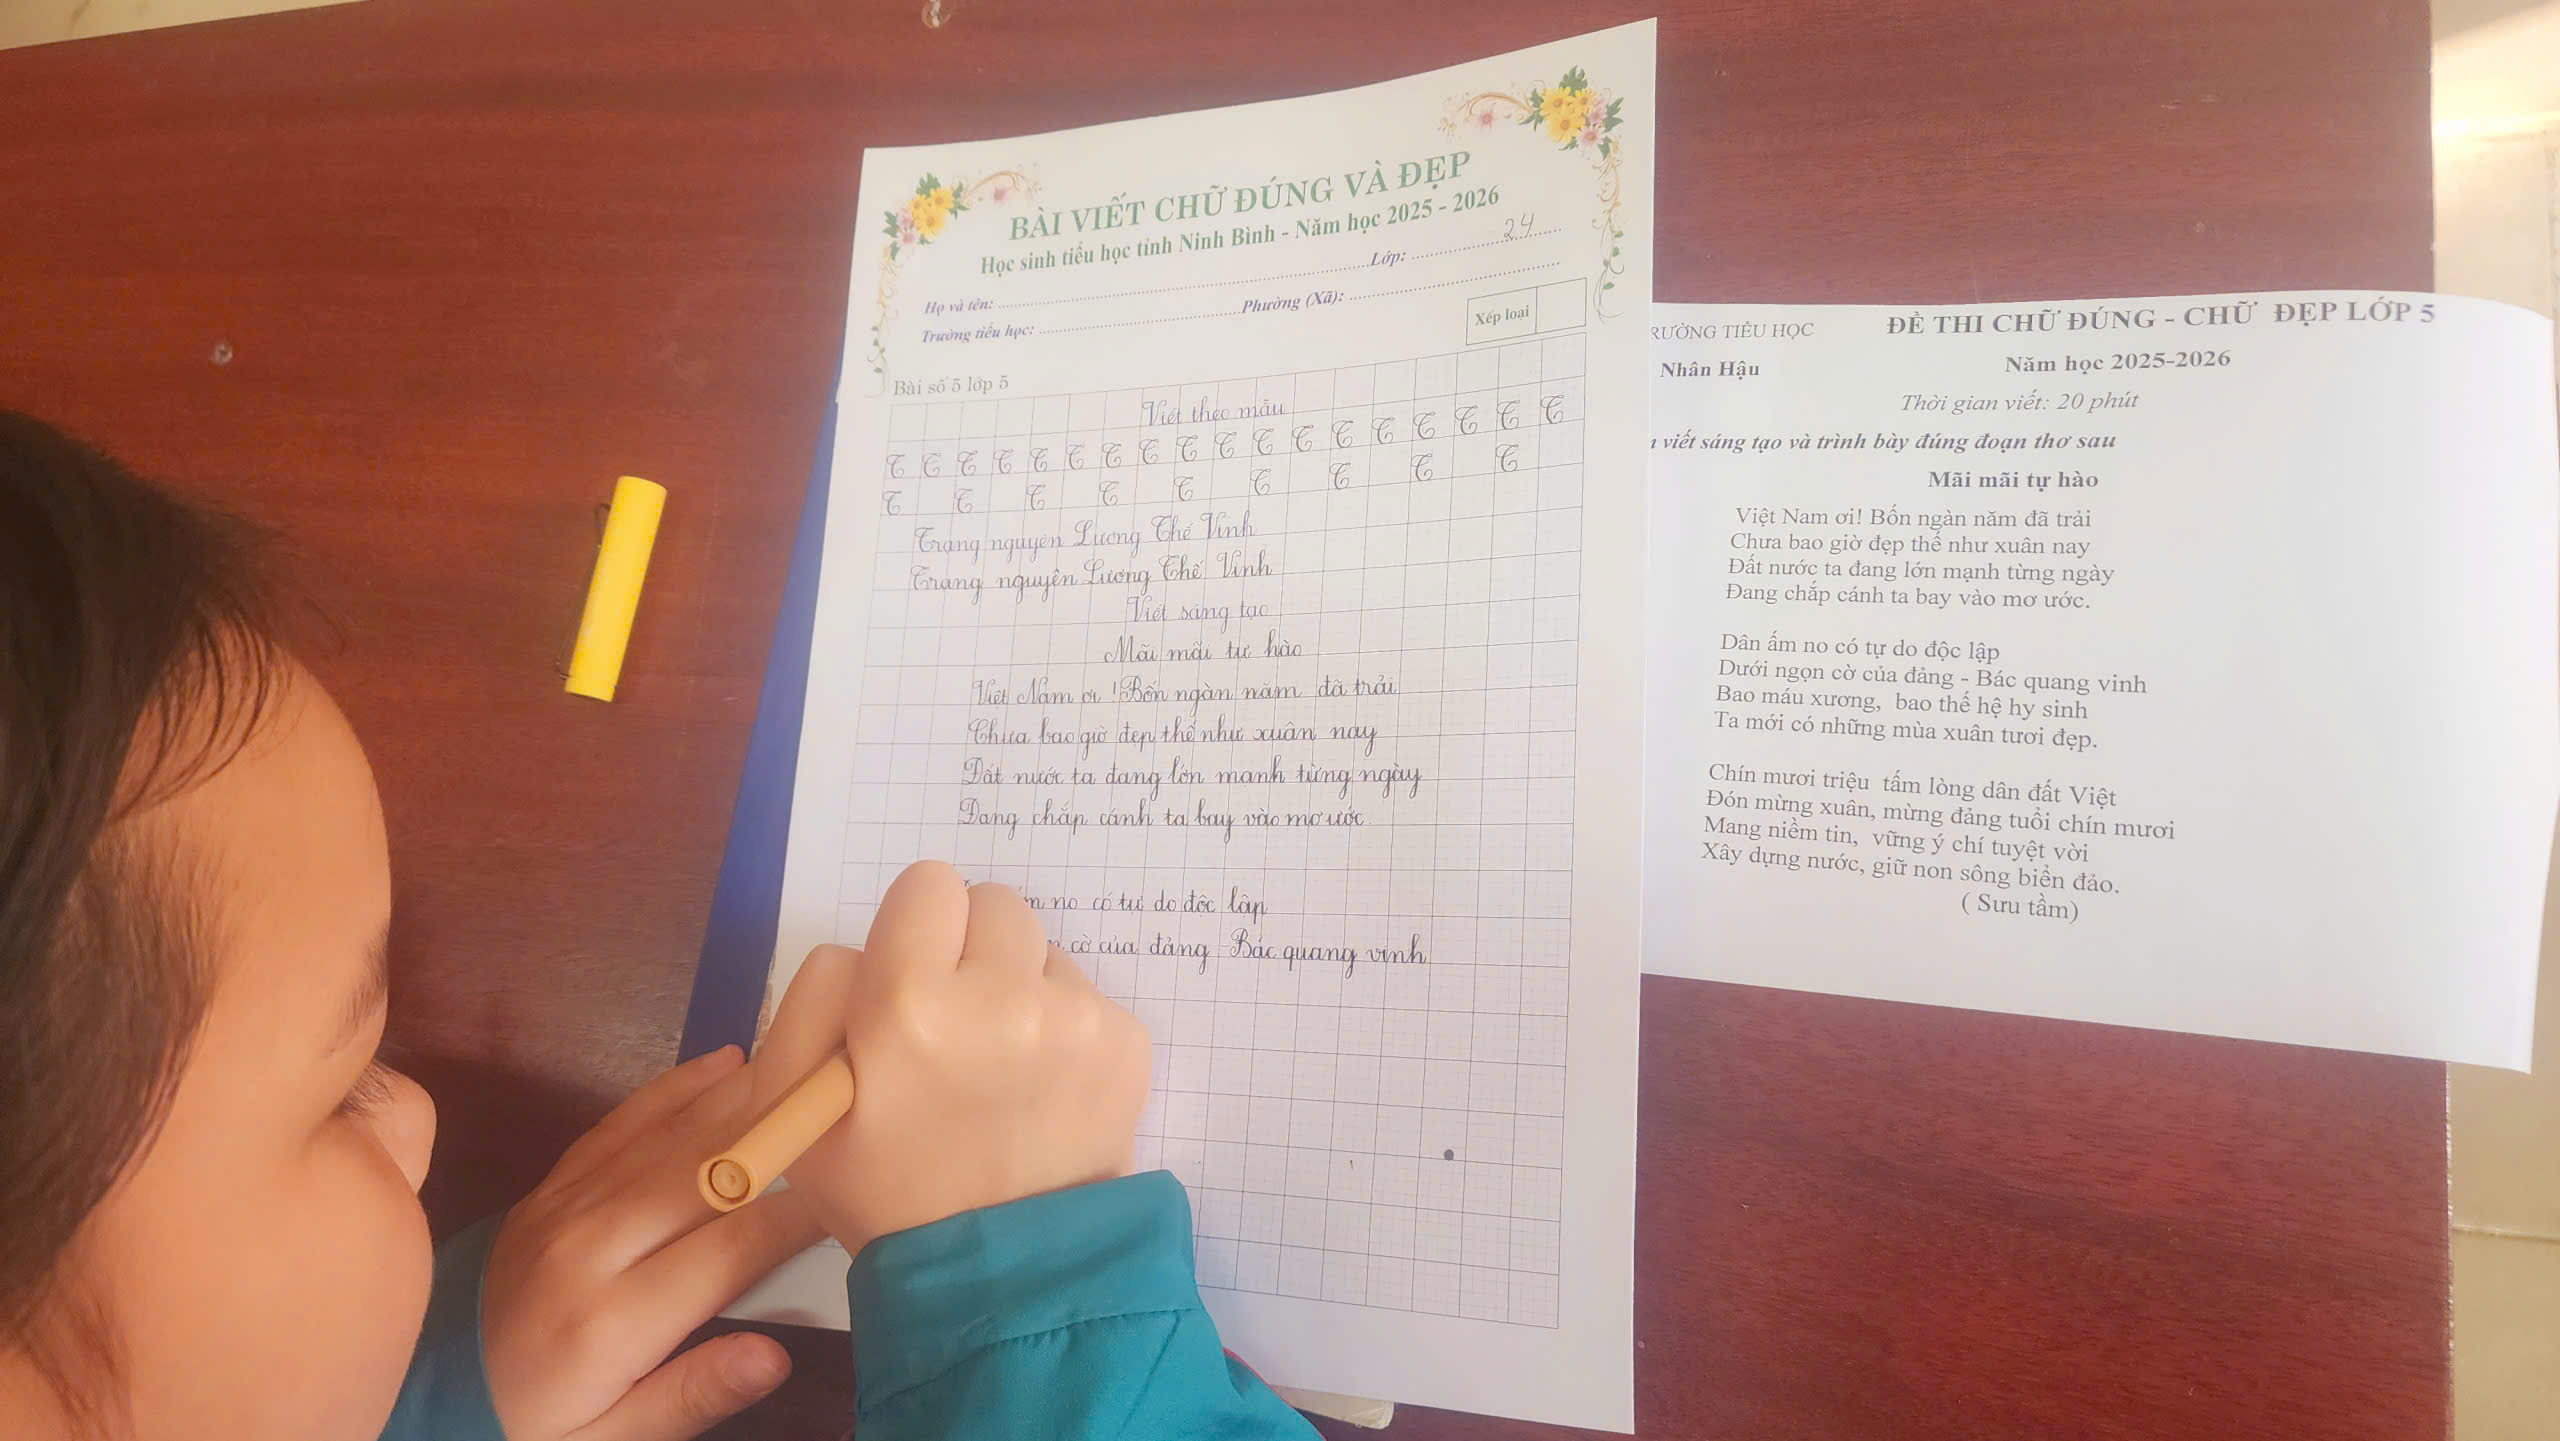 BÀI VIẾT CHỮ ĐÚNG VÀ ĐẸP
Học sinh tiểu học tỉnh Ninh Bình - Năm học 2025 - 2026
Họ và tên: Lớp: 24
Trường tiểu học: Phường (Xã):
Xếp loại
Bài số 5 lớp 5
Viết theo mẫu
Trạng nguyên Lương Thế Vinh
Trạng nguyên Lương Thế Vinh
Viết sáng tạo
Mãi mãi tự hào
Việt Nam ơi ! Bốn ngàn năm đã trải
Chưa bao giờ đẹp thế như xuân nay
Đất nước ta đang lớn mạnh từng ngày
Đang chắp cánh ta bay vào mơ ước.
no có tự do độc lập
cờ của đảng - Bác quang vinh
RƯỜNG TIỂU HỌC
Nhân Hậu
ĐỀ THI CHỮ ĐÚNG - CHỮ ĐẸP LỚP 5
Năm học 2025-2026
Thời gian viết: 20 phút
viết sáng tạo và trình bày đúng đoạn thơ sau
Mãi mãi tự hào
Việt Nam ơi! Bốn ngàn năm đã trải
Chưa bao giờ đẹp thế như xuân nay
Đất nước ta đang lớn mạnh từng ngày
Đang chắp cánh ta bay vào mơ ước.
Dân ấm no có tự do độc lập
Dưới ngọn cờ của đảng - Bác quang vinh
Bao máu xương, bao thế hệ hy sinh
Ta mới có những mùa xuân tươi đẹp.
Chín mươi triệu tấm lòng dân đất Việt
Đón mừng xuân, mừng đảng tuổi chín mươi
Mang niềm tin, vững ý chí tuyệt vời
Xây dựng nước, giữ non sông biển đảo.
( Sưu tầm)